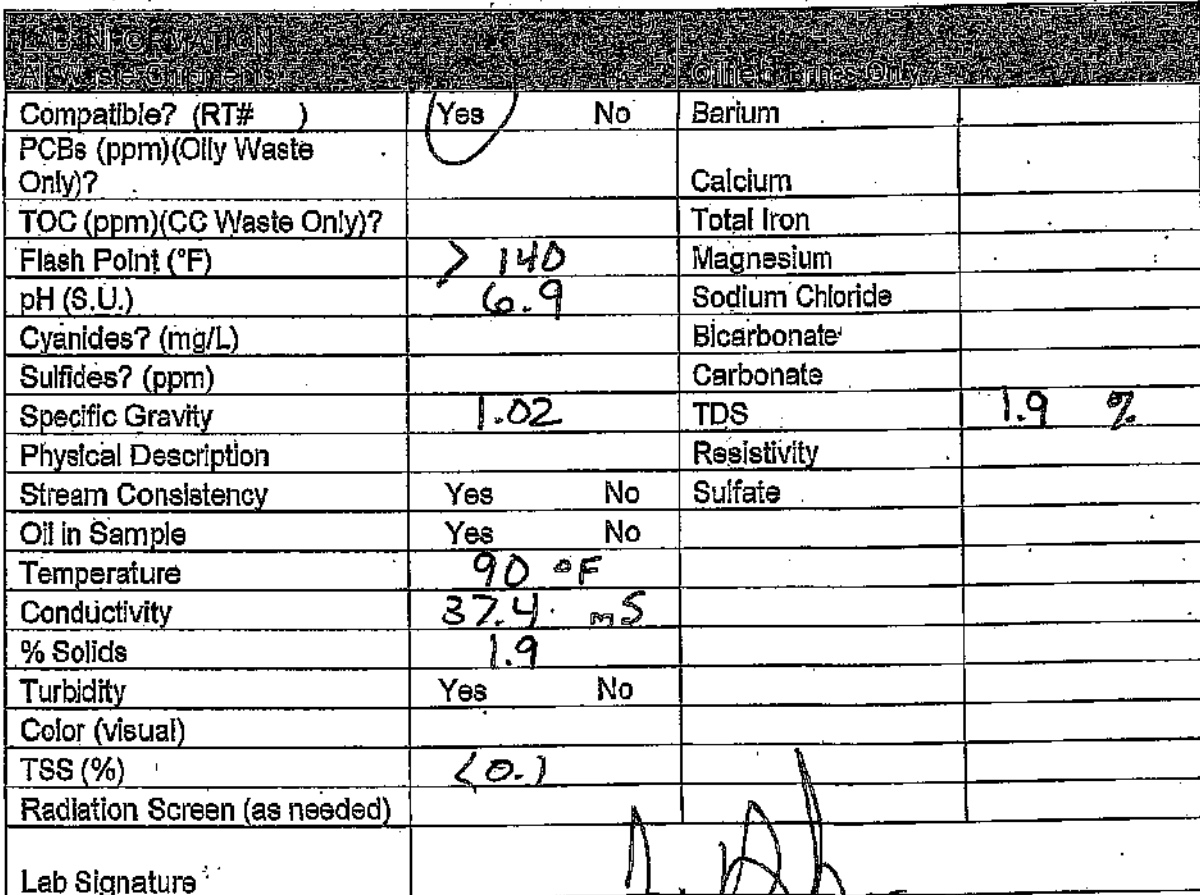 LAB INFORMATION
All Waste Shipments Oilfield Brines Only
Compatible? (RT# ) Yes No Barium
PCBs (ppm)(Oily Waste
Only)? Calcium
TOC (ppm)(CC Waste Only)? Total Iron
Flash Point (°F) > 140 Magnesium
pH (S.U.) 6.9 Sodium Chloride
Cyanides? (mg/L) Bicarbonate
Sulfides? (ppm) Carbonate
Specific Gravity 1.02 TDS 1.9 %
Physical Description Resistivity
Stream Consistency Yes No Sulfate
Oil in Sample Yes No
Temperature 90 °F
Conductivity 37.4 mS
% Solids 1.9
Turbidity Yes No
Color (visual)
TSS (%) <0.1
Radiation Screen (as needed)
Lab Signature